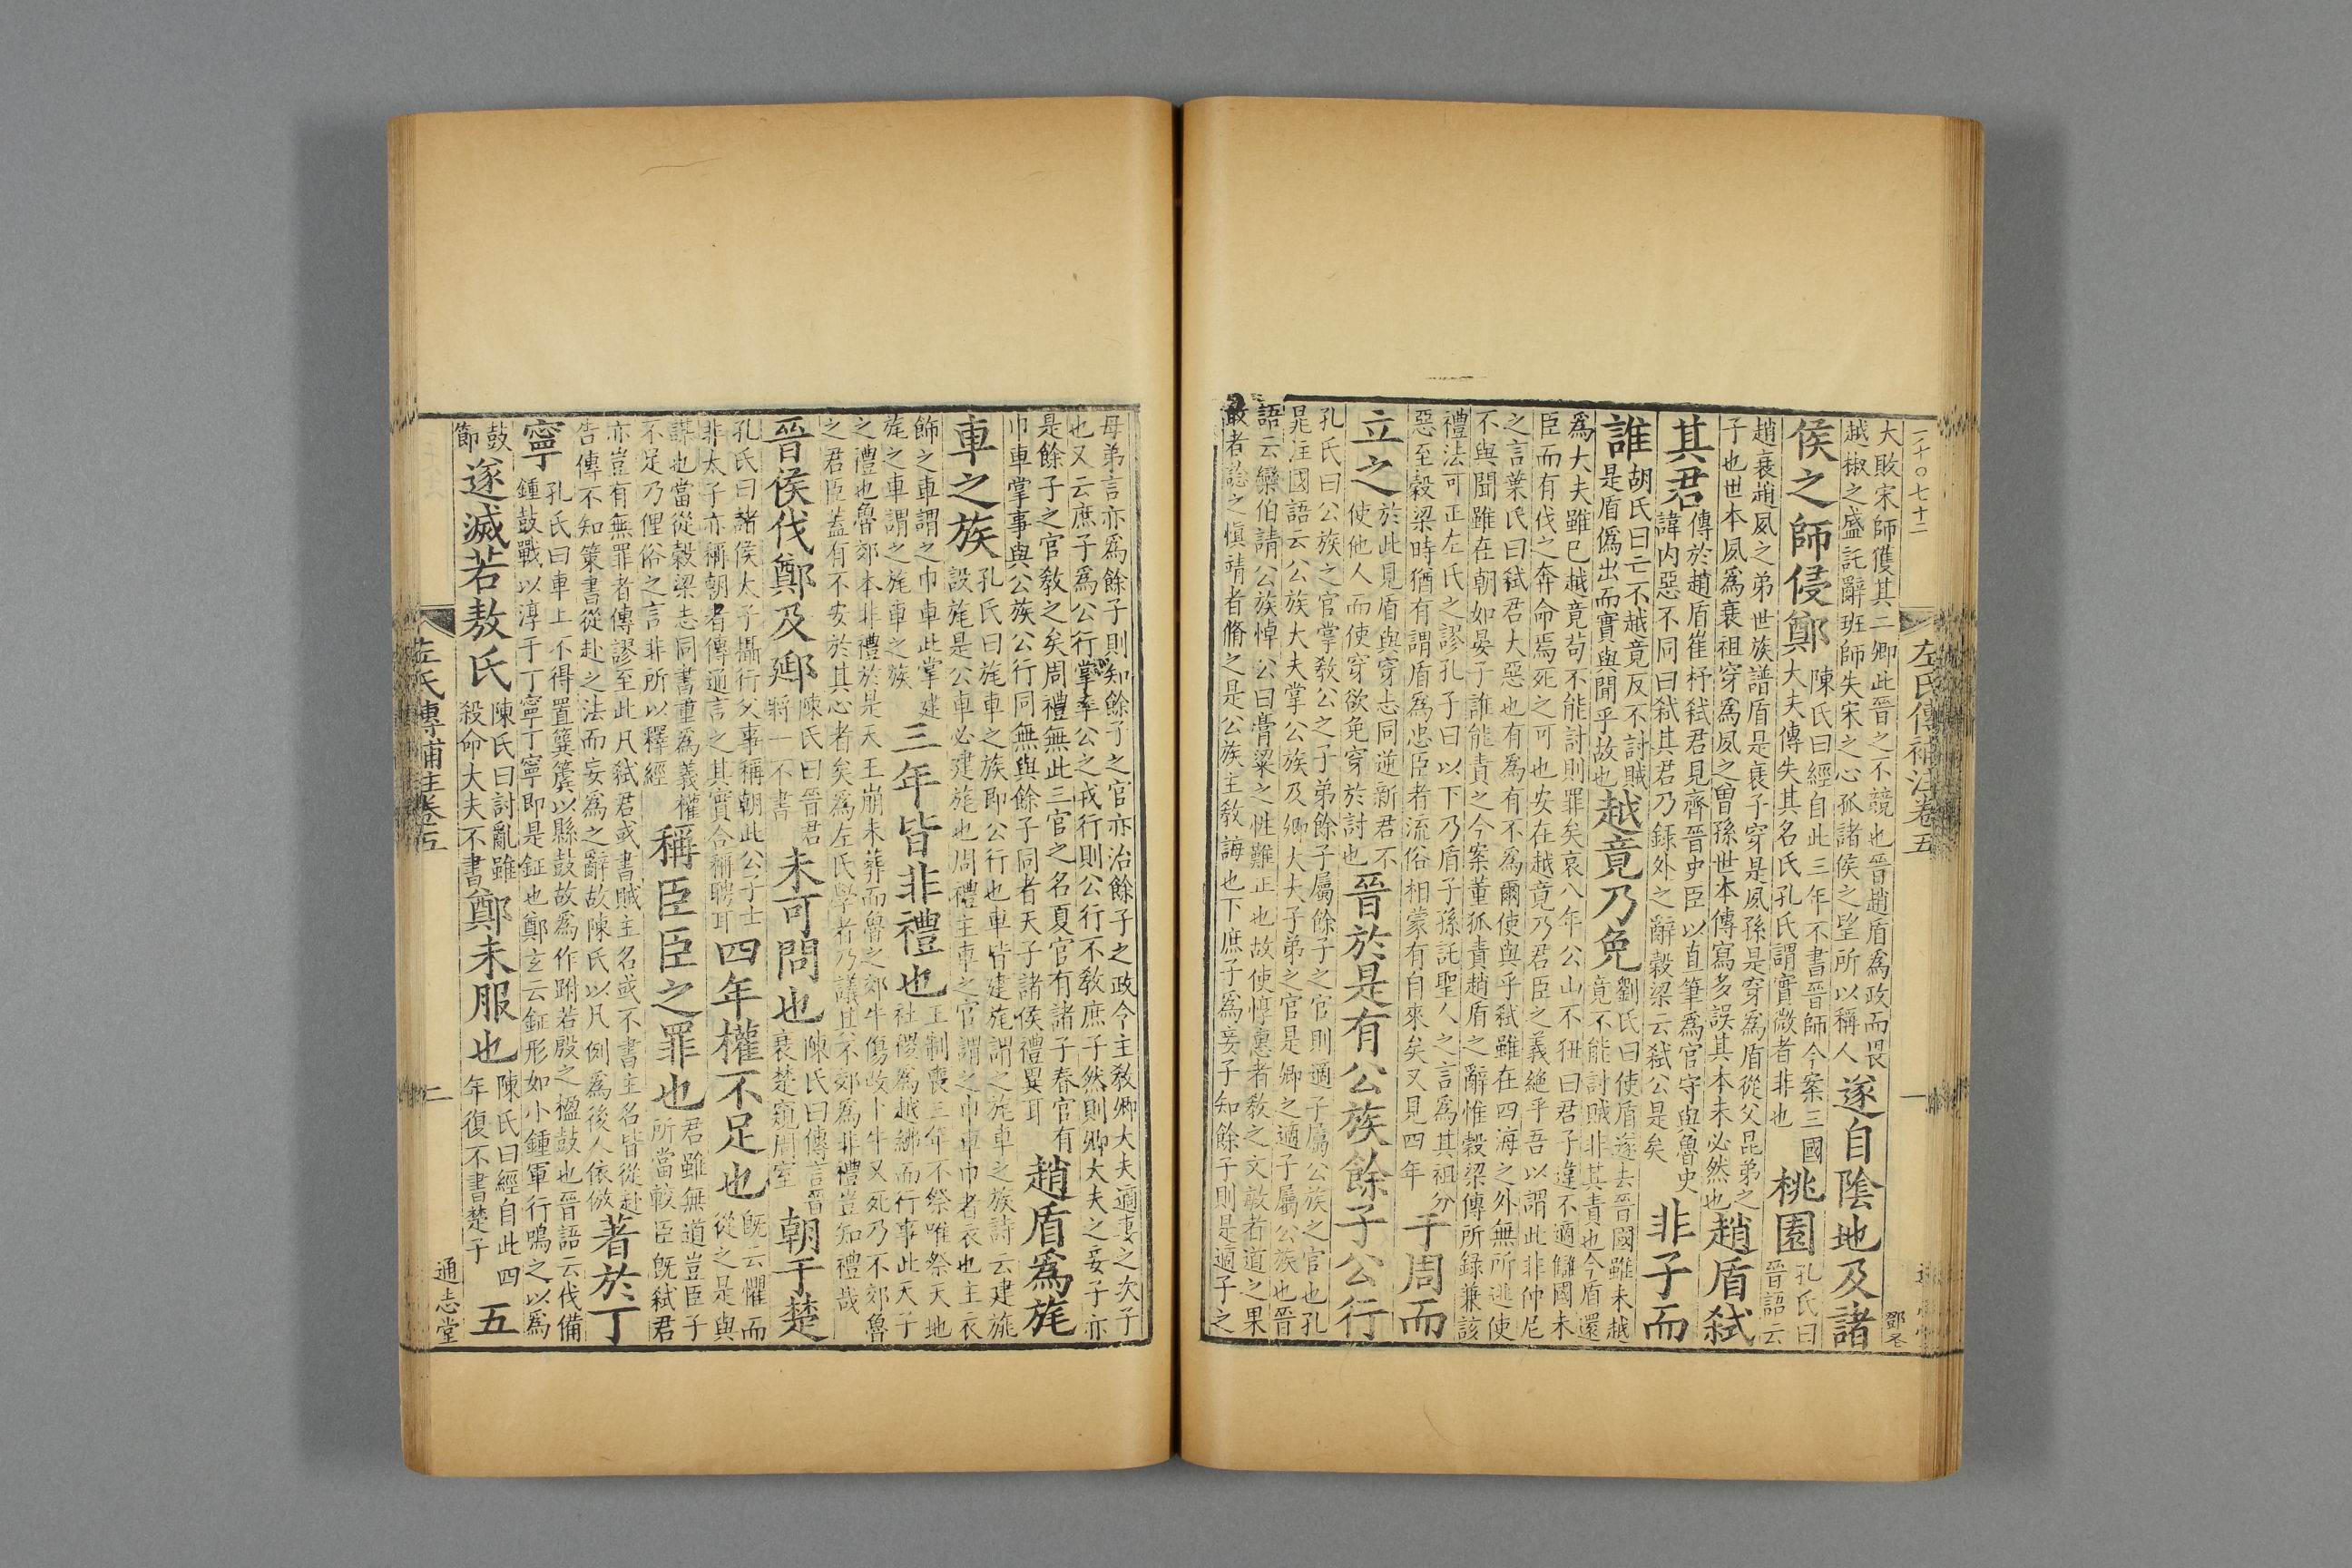 一千〇七十二
左氏傳補注卷五
一
大敗宋師獲其二卿此晉之不競也晉趙盾爲政而畏
越椒之盛託辭班師失宋之心孤諸侯之望所以稱人
遂自陰地及諸
侯之師侵鄭
陳氏曰經自此三年不書晉師今案三國
大夫傳失其名氏孔氏謂實微者非也
桃園
孔氏曰
晉語云
趙衰趙夙之弟世族譜盾是衰子穿是夙孫是穿爲盾從父昆弟之
子也世本夙爲衰祖穿爲夙之曾孫世本傳寫多誤其本未必然也
趙盾弒
其君
傳於趙盾崔杼弒君見齊晉史臣以直筆爲官守與魯史
諱内惡不同曰弒其君乃録外之辭穀梁云弒公是矣
非子而
誰
胡氏曰亡不越竟反不討賊
是盾僞出而實與聞乎故也
越竟乃免
劉氏曰使盾遂去晉國雖未越
竟不能討賊非其責也今盾還
爲大夫雖已越竟茍不能討則罪矣哀八年公山不狃曰君子違不適讎國未
臣而有伐之奔命焉死之可也安在越竟乃君臣之義絶乎吾以謂此非仲尼
之言葉氏曰弒君大惡也有爲有不爲爾使與乎弒雖在四海之外無所逃使
不與聞雖在朝如晏子誰能責之今案董狐責趙盾之辭惟穀梁傳所録兼該
禮法可正左氏之謬孔子曰以下乃盾子孫託聖人之言爲其祖分
惡至穀梁時猶有謂盾爲忠臣者流俗相蒙有自來矣又見四年
于周而
立之
於此見盾與穿志同逆新君不
使他人而使穿欲免穿於討也
晉於是有公族餘子公行
孔氏曰公族之官掌教公之子弟餘子屬餘子之官則適子屬公族之官也孔
晁注國語云公族大夫掌公族及卿大夫子弟之官是卿之適子屬公族也晉
語云欒伯請公族悼公曰膏粱之性難正也故使惇惠者教之文敏者道之果
敢者諗之愼靖者脩之是公族主教誨也下庶子爲妾子知餘子則是適子之
母弟言亦爲餘子則知餘子之官亦治餘子之政令主敎卿大夫適妻之次子
也又云庶子爲公行掌率公之戎行則公行不敎庶子然則卿大夫之妾子亦
是餘子之官敎之矣周禮無此三官之名夏官有諸子春官有
巾車掌事與公族公行同無與餘子同者天子諸侯禮異耳
趙盾爲旄
車之族
孔氏曰旄車之族即公行也車皆建旄謂之旄車之族詩云建旄
設旄是公車必建旄也周禮主車之官謂之巾車巾者衣也主衣
飾之車謂之巾車此掌建
旄之車謂之旄車之族
三年皆非禮也
王制喪三年不祭唯祭天地
社稷爲越紼而行事此天子
之禮也魯郊本非禮於是天王崩未葬而魯之郊牛傷改卜牛又死乃不郊魯
之君臣蓋有不安於其心者矣爲左氏學者乃議其不郊爲非禮豈知禮哉
晉侯伐鄭及郔
陳氏曰晉君
將一不書
未可問也
陳氏曰傳言晉
衰楚窺周室
朝于楚
孔氏曰諸侯太子攝行父事稱朝此公子士
非太子亦稱朝者傳通言之其實合稱聘耳
四年權不足也
旣云懼而
從之是與
謀也當從穀梁志同書重爲義權
不足乃俚俗之言非所以釋經
稱臣臣之罪也
君雖無道豈臣子
所當較臣旣弒君
亦豈有無罪者傳謬至此凡弒君或書賊主名或不書主名皆從赴
告傳不知策書從赴之法而妄爲之辭故陳氏以凡例爲後人依倣
著於丁
寧
孔氏曰車上不得置簨簴以縣鼓故爲作跗若殷之楹鼓也晉語云伐備
鍾鼓戰以淳于丁寧丁寧即是鉦也鄭玄云鉦形如小鍾軍行鳴之以爲
鼓
節
遂滅若敖氏
陳氏曰討亂雖
殺命大夫不書
鄭未服也
陳氏曰經自此四
年復不書楚子
五
左氏傳補注卷五
二
通志堂